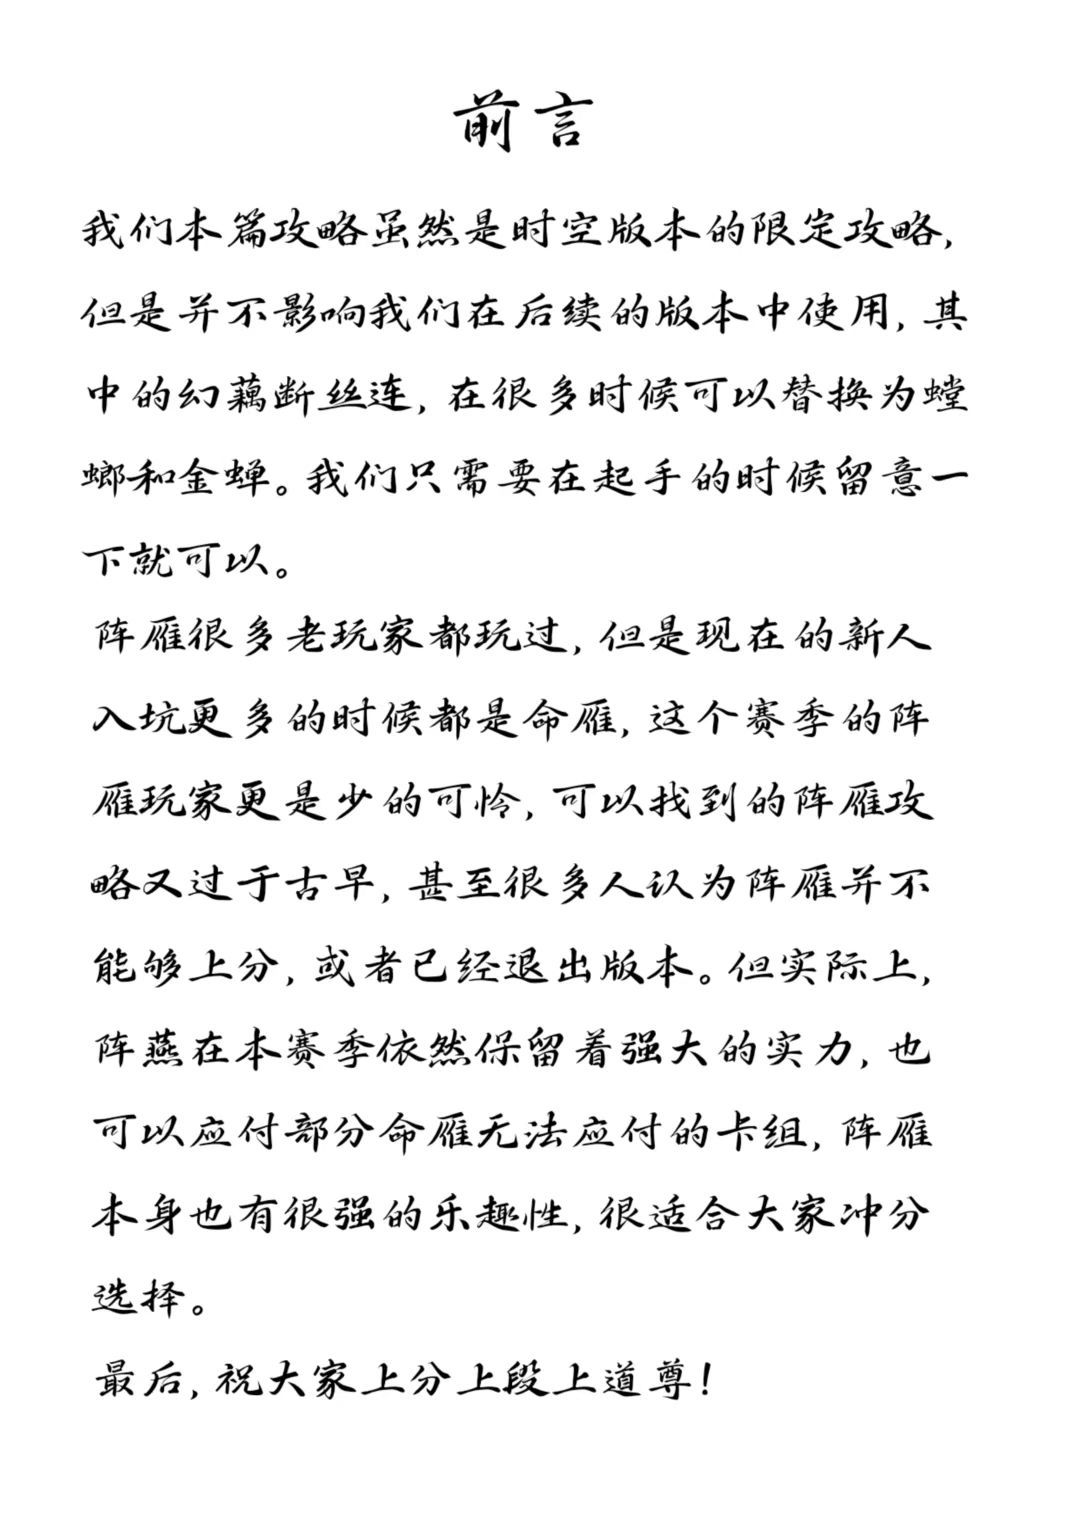 前言
我们本篇攻略虽然是时空版本的限定攻略，
但是并不影响我们在后续的版本中使用，其
中的幻藕断丝连，在很多时候可以替换为螳
螂和金蝉。我们只需要在起手的时候留意一
下就可以。
阵雁很多老玩家都玩过，但是现在的新人
入坑更多的时候都是命雁，这个赛季的阵
雁玩家更是少的可怜，可以找到的阵雁攻
略又过于古早，甚至很多人认为阵雁并不
能够上分，或者已经退出版本。但实际上，
阵燕在本赛季依然保留着强大的实力，也
可以应付部分命雁无法应付的卡组，阵雁
本身也有很强的乐趣性，很适合大家冲分
选择。
最后，祝大家上分上段上道尊！